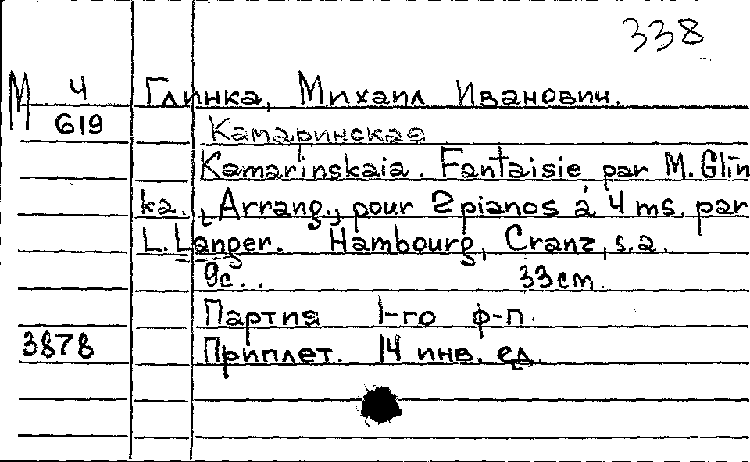 338
М Ч Глинка, Михаил Иванович.
619 Камаринская
Kamarinskaia. Fantaisie par M. Glin
ka. Arrang., pour 2 pianos à 4 ms. par
L. Langer. Hambourg, Cranz, s.a.
9с.. 33 cm.
Партия 1-го ф-п.
3878 Приплет. 14 инв. ед.